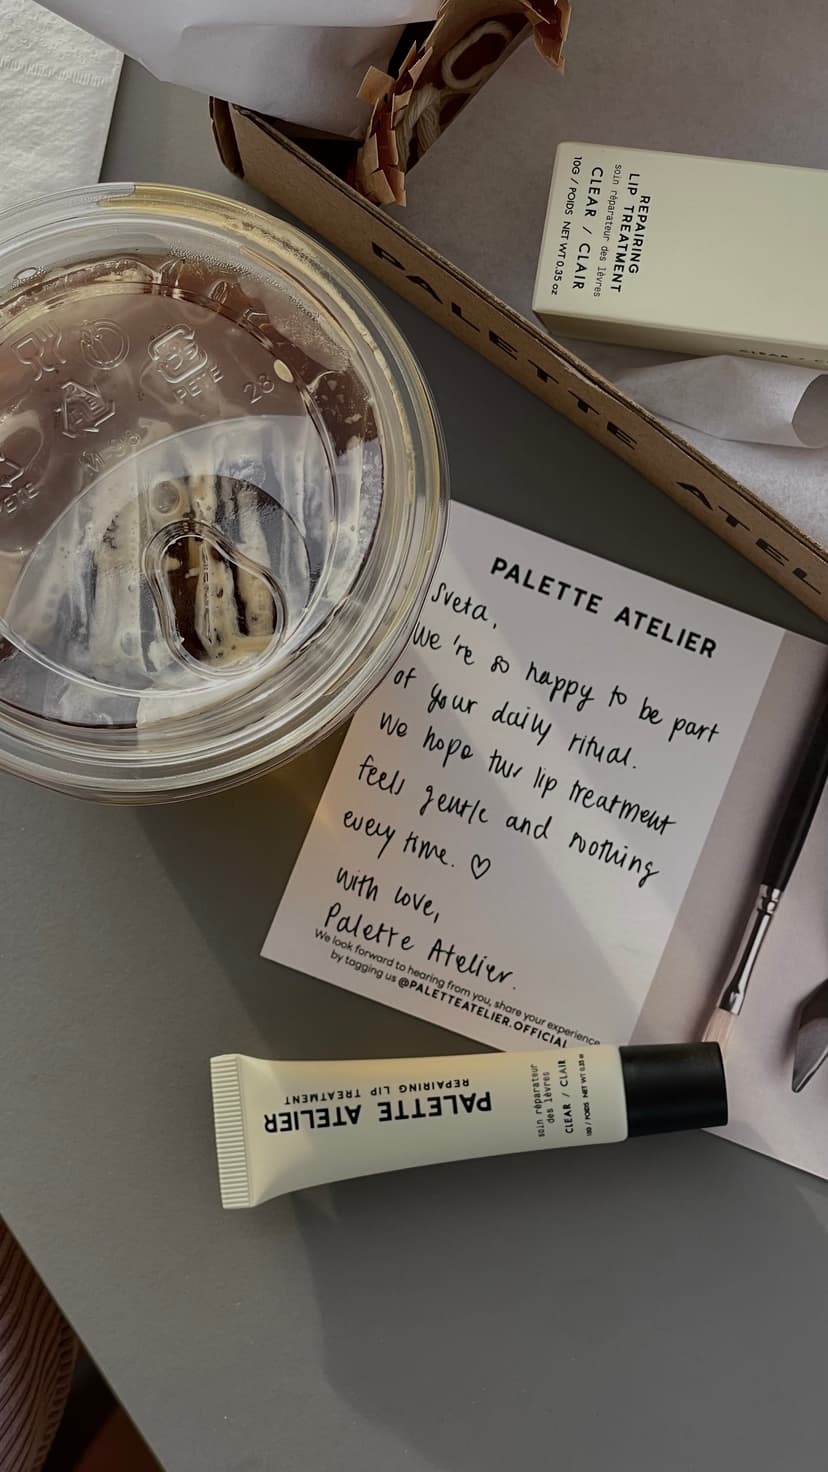 REPAIRING
LIP TREATMENT
soin réparateur des lèvres
CLEAR / CLAIR
10G / POIDS NET WT 0.35 oz
CLEAR / C
PALETTE ATEL
PETE
28
PETE
PALETTE ATELIER
Sveta,
We're so happy to be part
of your daily ritual.
We hope this lip treatment
feels gentle and soothing
every time. ♡
With love,
Palette Atelier.
We look forward to hearing from you, share your experience
by tagging us @PALETTEATELIER.OFFICIAL
PALETTE ATELIER
REPAIRING LIP TREATMENT
soin réparateur
des lèvres
CLEAR / CLAIR
10G / POIDS NET WT 0.35 oz